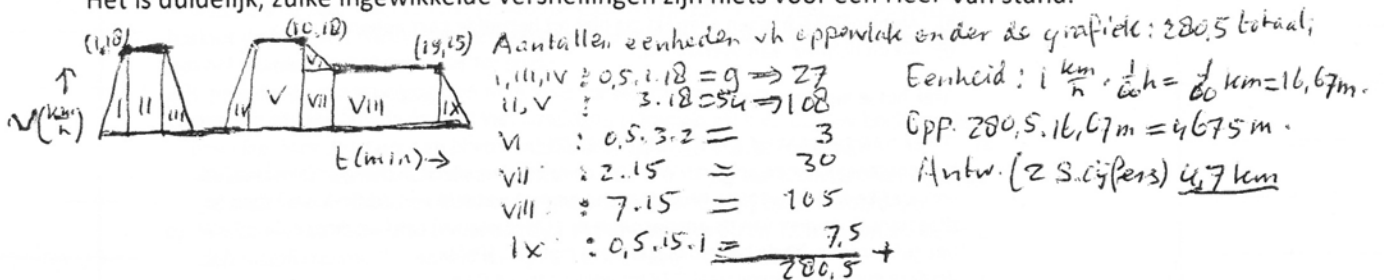 Het is duidelijk, zulke ingewikkelde versnellingen zijn niets voor een heer van stand.
(1,18) (10,18) (19,15)
V(km/h) ↑
I II III IV V VI VII VIII IX
t(min)→
Aantallen eenheden vh oppervlak onder de grafiek: 280,5 totaal;
I, III, IV : 0,5.1.18 = 9 ⇒ 27
II, V : 3.18=54 ⇒ 108
VI : 0,5.3.2 = 3
VII : 2.15 = 30
VIII : 7.15 = 105
IX : 0,5.15.1 = 7,5 +
280,5
Eenheid : 1 km/h . 1/60 h = 1/60 km = 16,67m.
Opp. 280,5.16,67m = 4675m.
Antw. (2 S.cijfers) 4,7 km